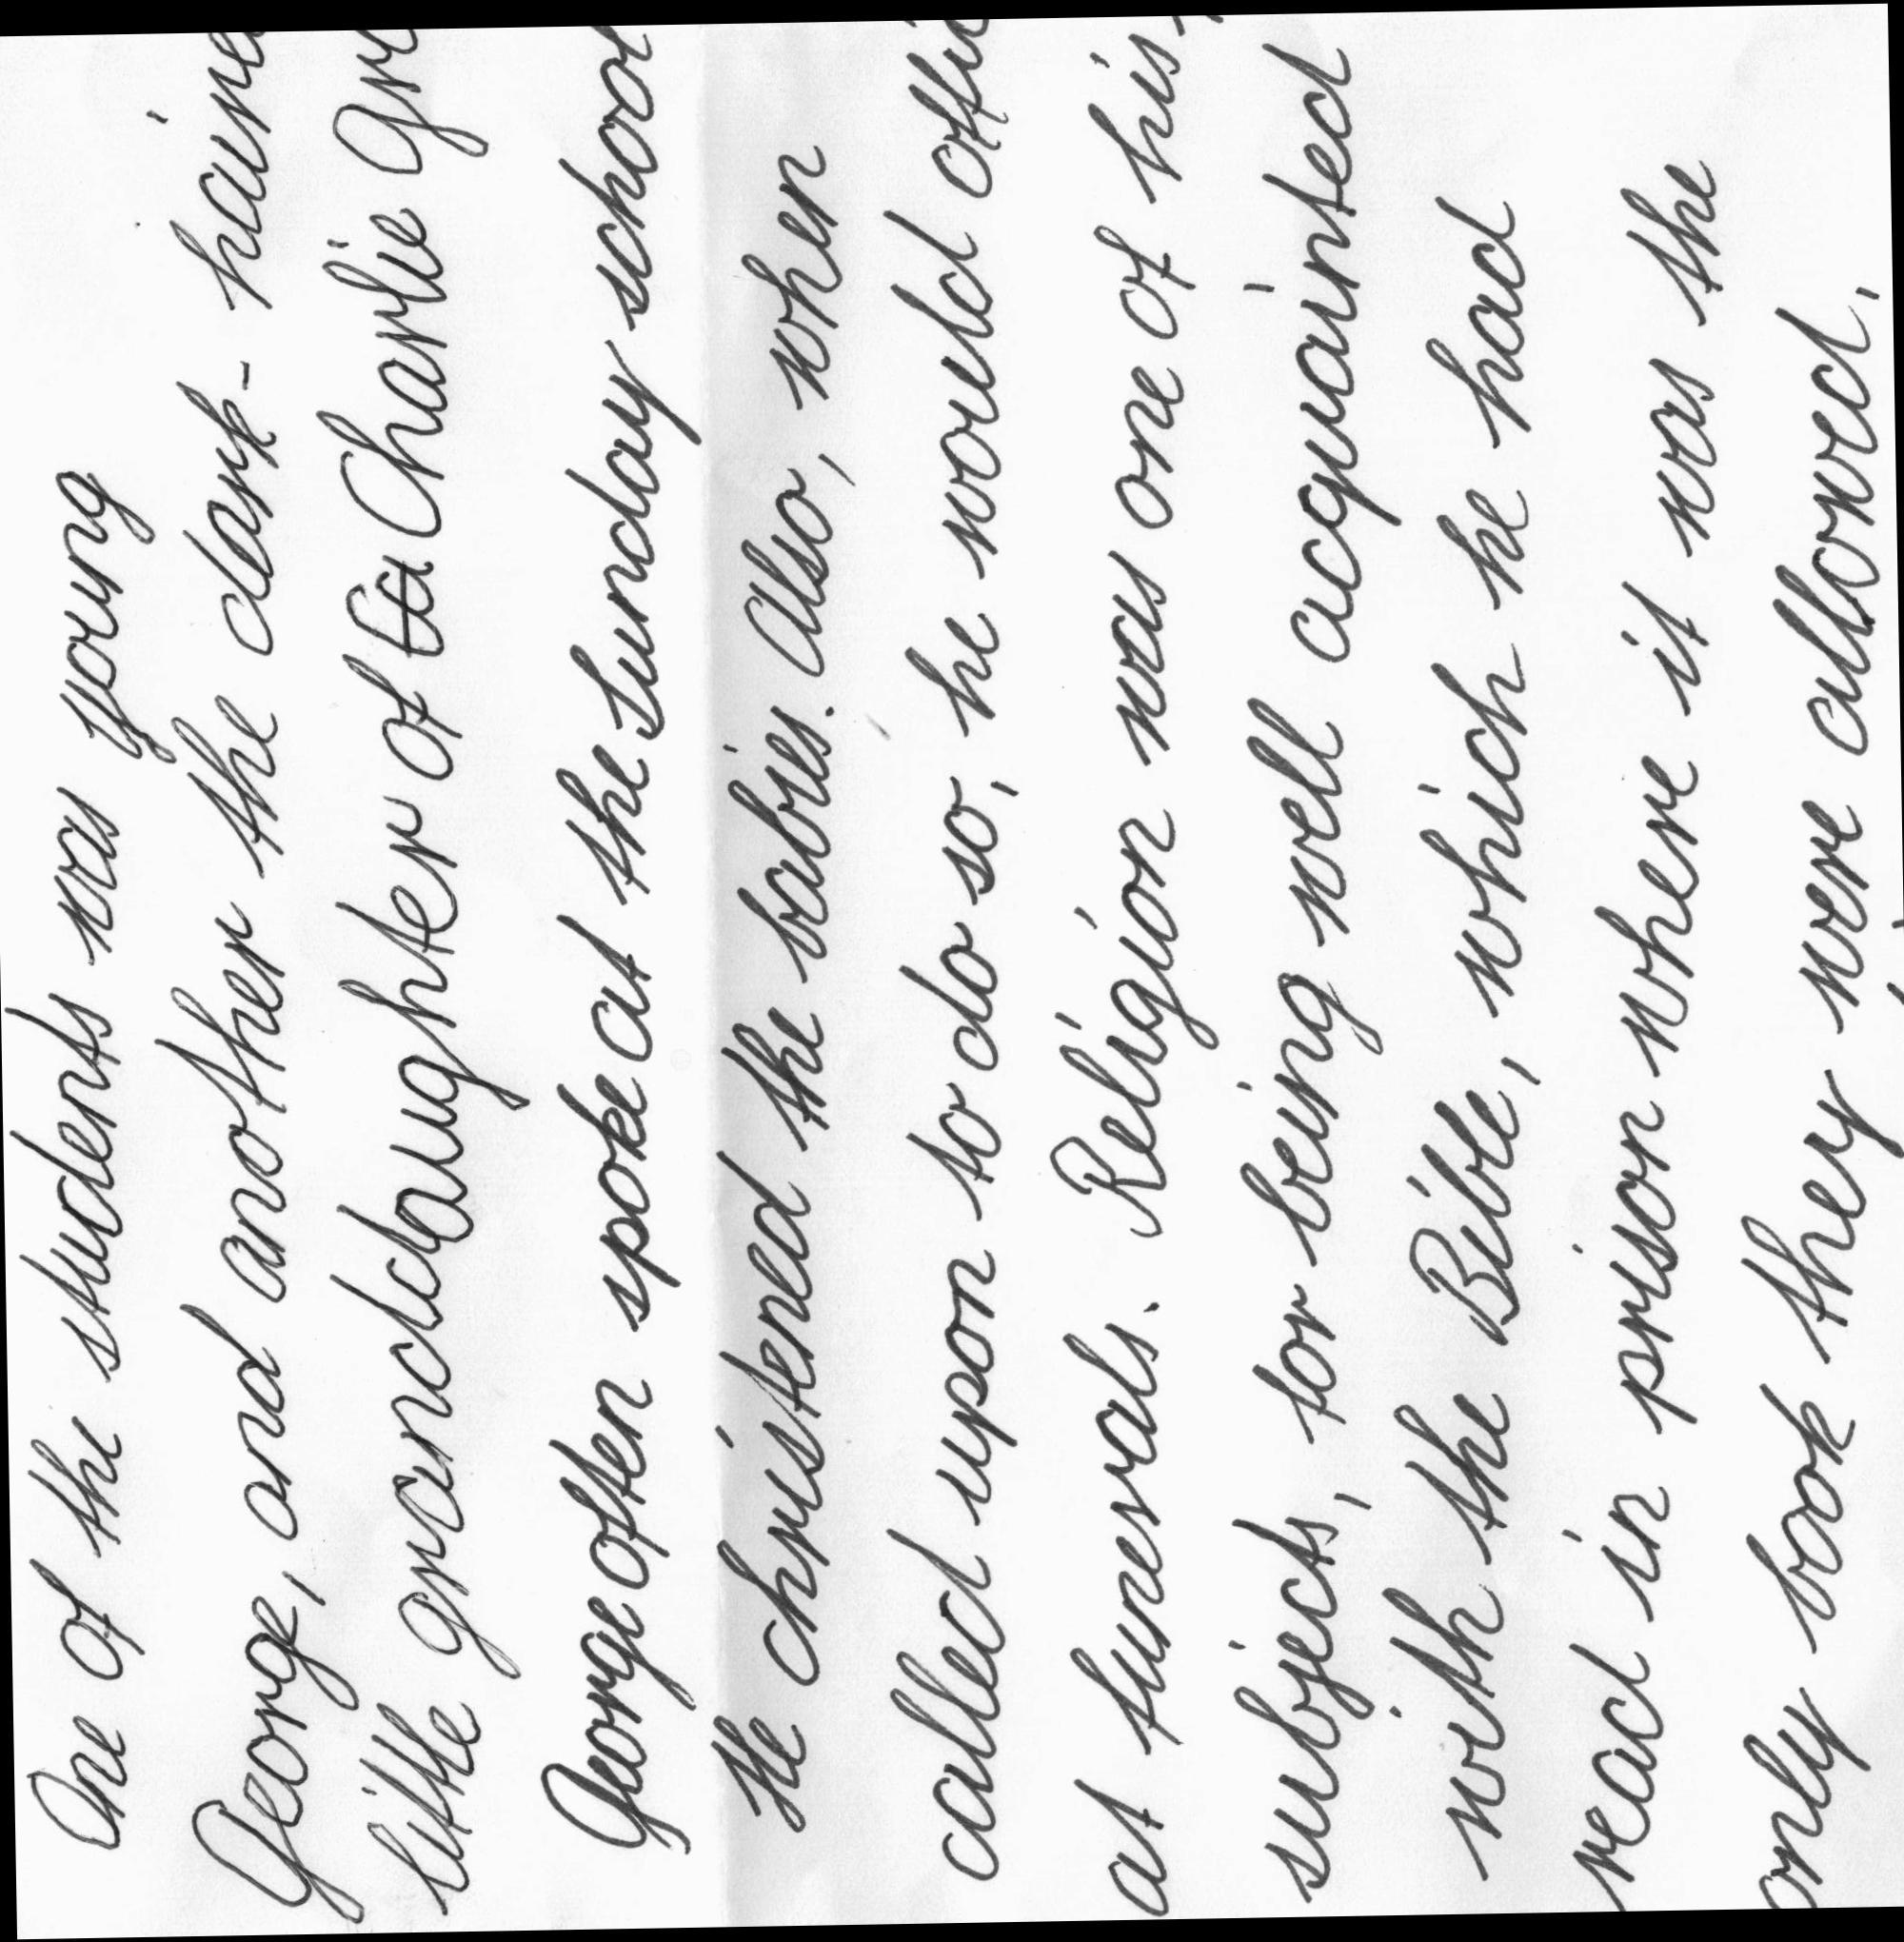 One of the students was young
George, and another the dark-haire
little granddaughter of Charlie Gre
George often spoke at the Sunday school
He christened the babies. Also, when
called upon to do so, he would offi
at funerals. Religion was one of his
subjects, for being well acquainted
with the Bible, which he had
read in prison where it was the
only book they were allowed.